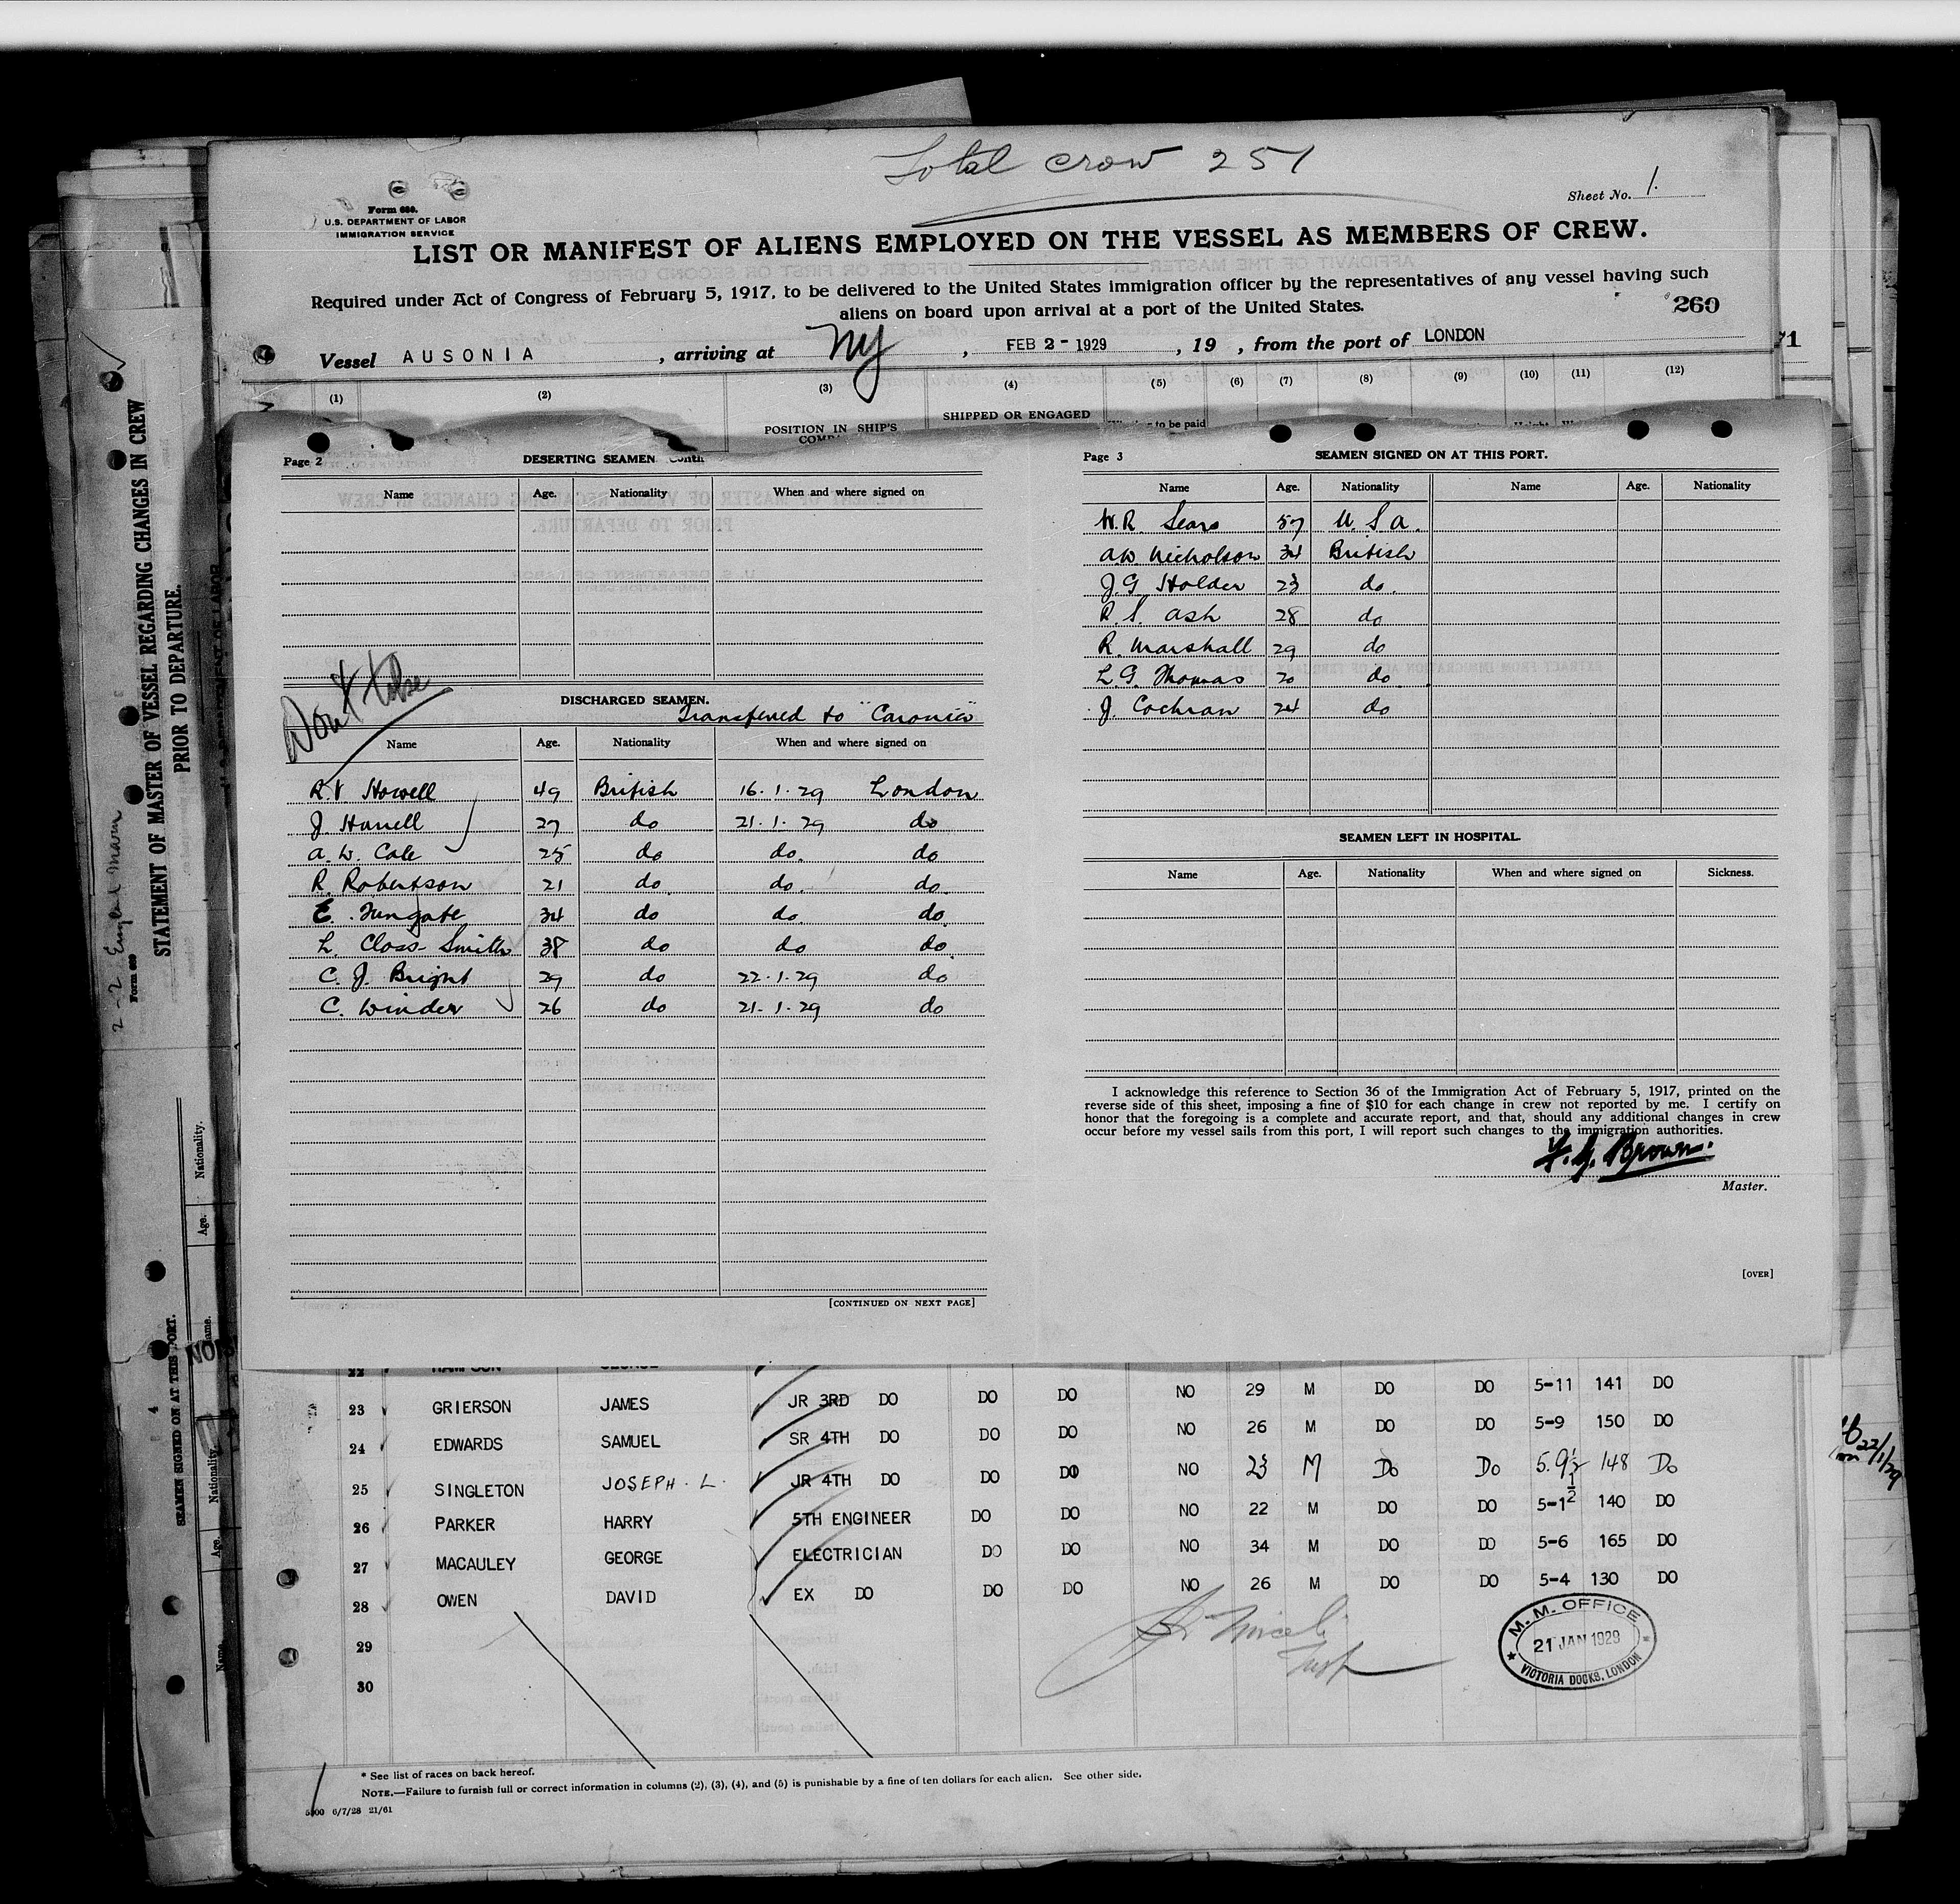 Total crow 251
Sheet No. 1.
Form 689.
U.S. DEPARTMENT OF LABOR
IMMIGRATION SERVICE
LIST OR MANIFEST OF ALIENS EMPLOYED ON THE VESSEL AS MEMBERS OF CREW.
Required under Act of Congress of February 5, 1917, to be delivered to the United States immigration officer by the representatives of any vessel having such
aliens on board upon arrival at a port of the United States.
260
Vessel AUSONIA , arriving at NY , FEB 2 - 1929 , 19 , from the port of LONDON
71
(1) (2) (3) (4) (5) (6) (7) (8) (9) (10) (11) (12)
POSITION IN SHIP'S SHIPPED OR ENGAGED to be paid
Page 2 DESERTING SEAMEN
Name Age. Nationality When and where signed on
Don't take
DISCHARGED SEAMEN.
Transferred to "Caronia"
Name Age. Nationality When and where signed on
R.V Howell 49 British 16.1.29 London
J. Harrell 27 do 21.1.29 do
A. W. Cole 25 do do. do
R. Robertson 21 do. do. do.
E. Fungate 34 do do do
L. Class-Smith 38 do do do.
C. J. Bright 29 do 22.1.29 do
C. Winder 26 do 21.1.29 do
[CONTINUED ON NEXT PAGE]
Page 3 SEAMEN SIGNED ON AT THIS PORT.
Name Age. Nationality Name Age. Nationality
W.R. Sears 57 U.S.A.
A.W. Nicholson 34 British
J.G. Holder 23 do.
R.S. Ash 28 do
R. Marshall 29 do
L.G. Thomas 20 do.
J. Cochran 24 do
SEAMEN LEFT IN HOSPITAL.
Name Age. Nationality When and where signed on Sickness.
I acknowledge this reference to Section 36 of the Immigration Act of February 5, 1917, printed on the
reverse side of this sheet, imposing a fine of $10 for each change in crew not reported by me. I certify on
honor that the foregoing is a complete and accurate report, and that, should any additional changes in crew
occur before my vessel sails from this port, I will report such changes to the immigration authorities.
F.G. Brown.
Master.
[OVER]
22
23 GRIERSON JAMES JR 3RD DO DO DO NO 29 M DO DO 5-11 141 DO
24 EDWARDS SAMUEL SR 4TH DO DO DO NO 26 M DO DO 5-9 150 DO
25 SINGLETON JOSEPH. L. JR 4TH DO DO DO NO 23 M Do Do 5.9½ 148 Do
26 PARKER HARRY 5TH ENGINEER DO DO NO 22 M DO DO 5-1½ 140 DO
27 MACAULEY GEORGE ELECTRICIAN DO DO NO 34 M DO DO 5-6 165 DO
28 OWEN DAVID EX DO DO DO NO 26 M DO DO 5-4 130 DO
29
30
M. M. OFFICE
21 JAN 1929
VICTORIA DOCKS, LONDON
* See list of races on back hereof.
NOTE.—Failure to furnish full or correct information in columns (2), (3), (4), and (5) is punishable by a fine of ten dollars for each alien. See other side.
6/7/28 21/61
STATEMENT OF MASTER OF VESSEL REGARDING CHANGES IN CREW
PRIOR TO DEPARTURE.
Form 689
SEAMEN SIGNED ON AT THIS PORT.
4
Nationality.
Age.
Name.
Nationality.
Age.
Name
22/1/29